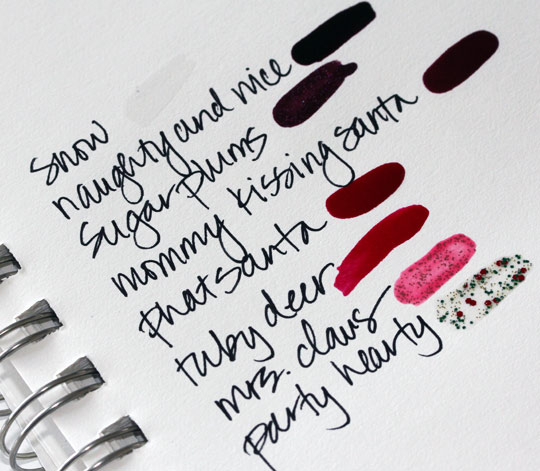 snow
naughty and nice
sugar plums
mommy kissing santa
phat santa
ruby deer
mrs. claus
party hearty